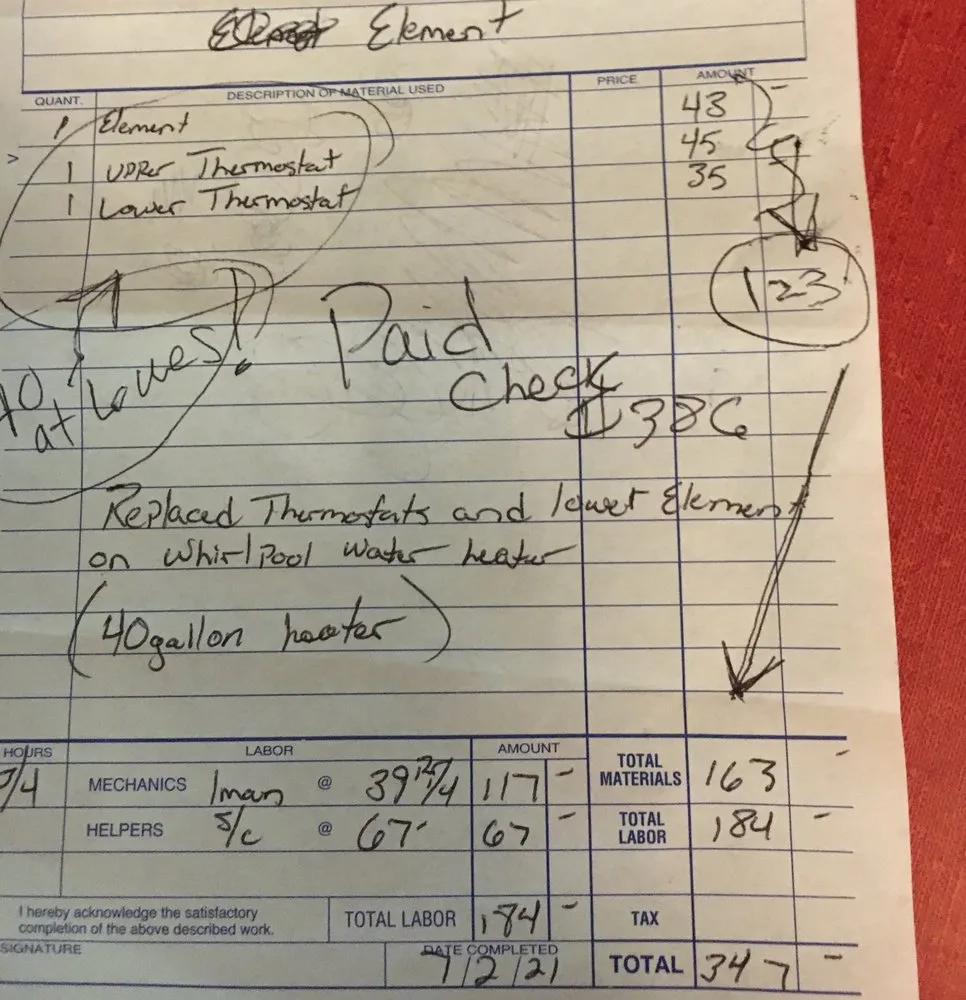 Element
QUANT. DESCRIPTION OF MATERIAL USED PRICE AMOUNT
1 Element 43 -
1 UPPer Thermostat 45
1 Lower Thermostat 35
123
at Lowes!
Paid
Check
$386
Replaced Thermostats and lower Element
on Whirlpool Water heater
(40gallon heater)
HOURS LABOR AMOUNT
3/4 MECHANICS 1man @ 39 117 - TOTAL MATERIALS 163 -
HELPERS S/C @ 67- 67 - TOTAL LABOR 184 -
I hereby acknowledge the satisfactory
completion of the above described work. TOTAL LABOR 184 - TAX
SIGNATURE DATE COMPLETED
7/2/21 TOTAL 347 -